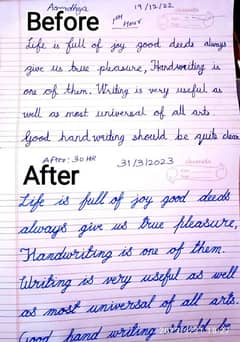 Aaradhya 19/12/22
Before 1st Hour
Life is full of joy good deeds always
give us true pleasure, Handwriting is
one of them. Writing is very useful as
well as most universal of all arts.
Good hand writing should be quite clear
After: 30 HR 31/3/2023
After
Life is full of joy good deeds
always give us true pleasure,
Handwriting is one of them.
Writing is very useful as well
as most universal of all arts.
Good hand writing should be